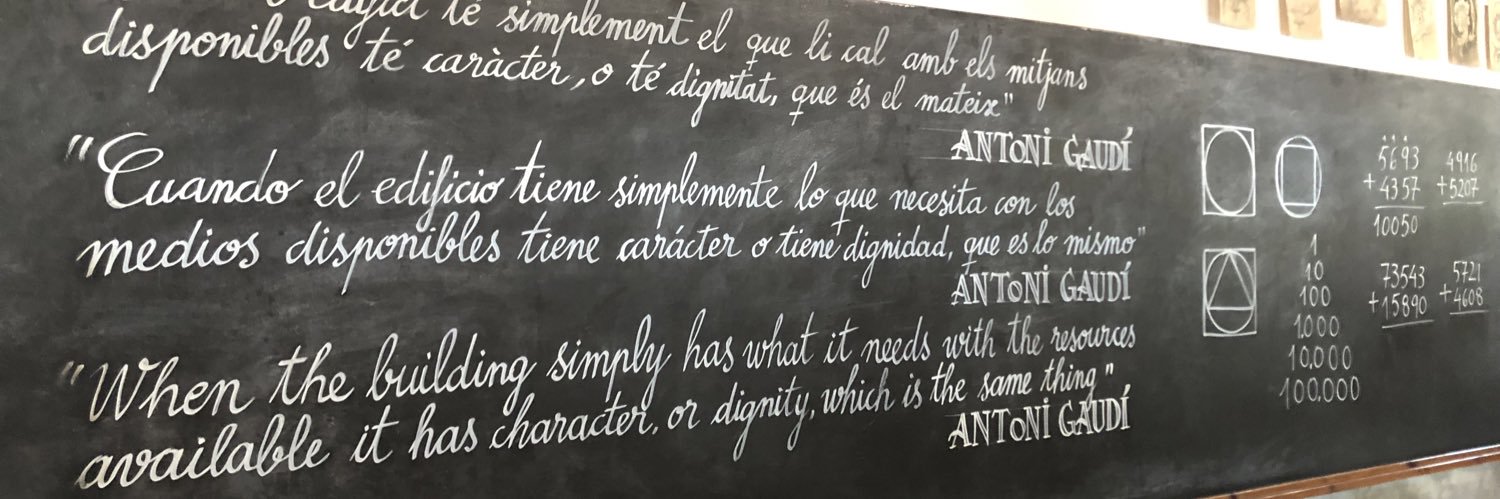 té simplement el que li cal amb els mitjans
disponibles té caràcter, o té dignitat, que és el mateix"
ANTONI GAUDÍ
"Cuando el edificio tiene simplemente lo que necesita con los
medios disponibles tiene carácter o tiene dignidad, que es lo mismo"
ANTONI GAUDÍ
"When the building simply has what it needs with the resources
available it has character, or dignity, which is the same thing"
ANTONI GAUDÍ
5693
+4357
10050
4916
+5207
1
10
100
1.000
10.000
100.000
73543
+15890
5721
+4608